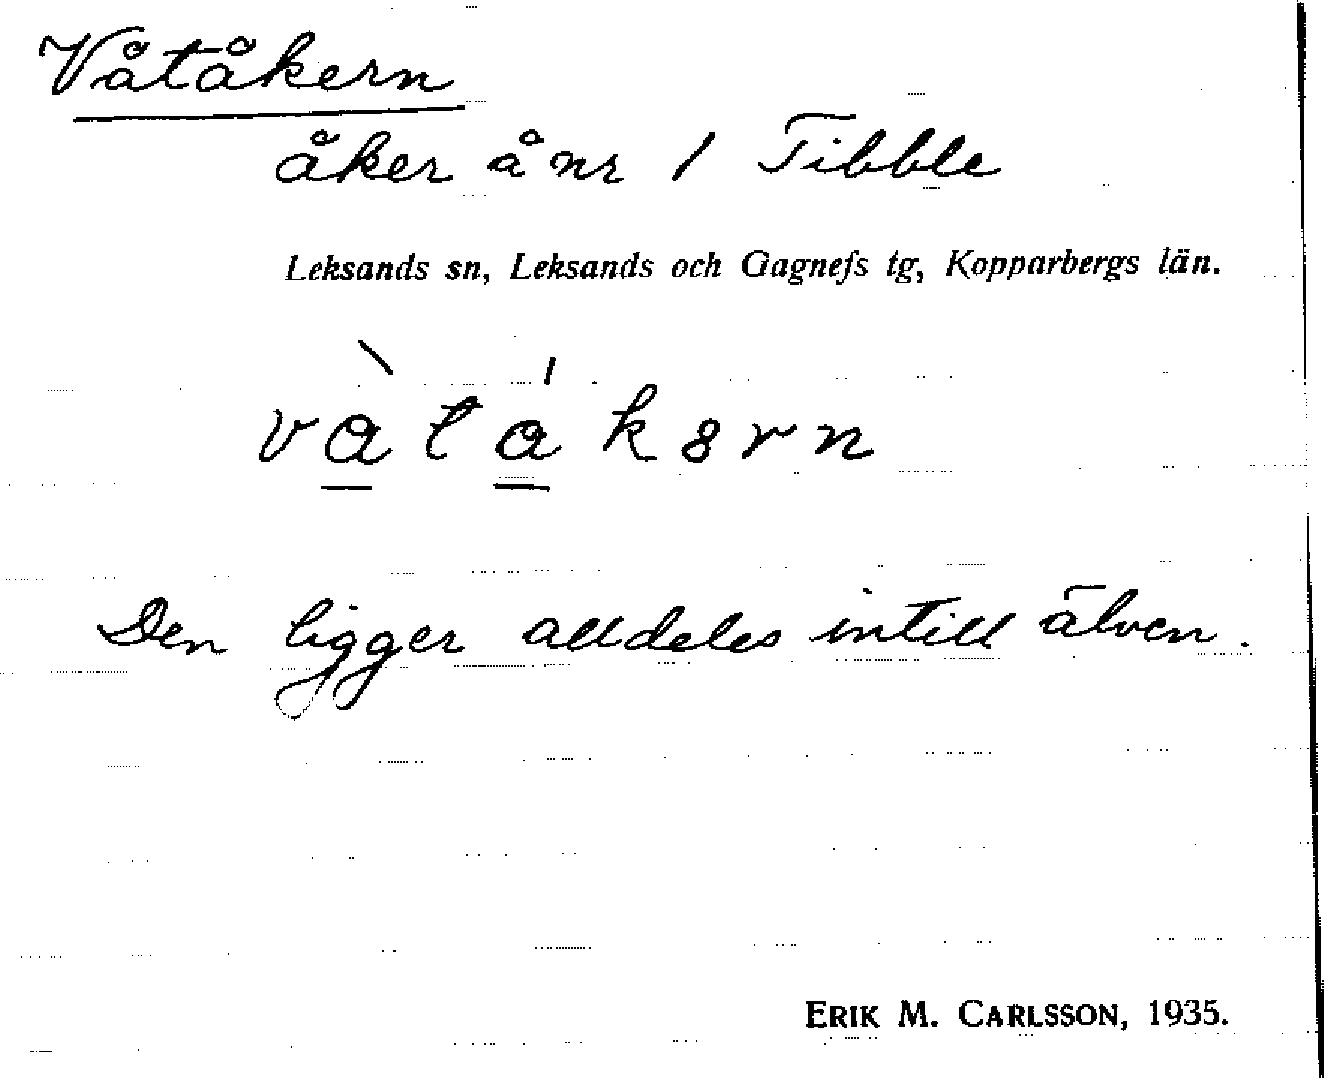 Våtåkern
åker å nr 1 Tibble
Leksands sn, Leksands och Gagnefs tg, Kopparbergs län.
Den ligger alldeles intill älven.
ERIK M. CARLSSON, 1935.